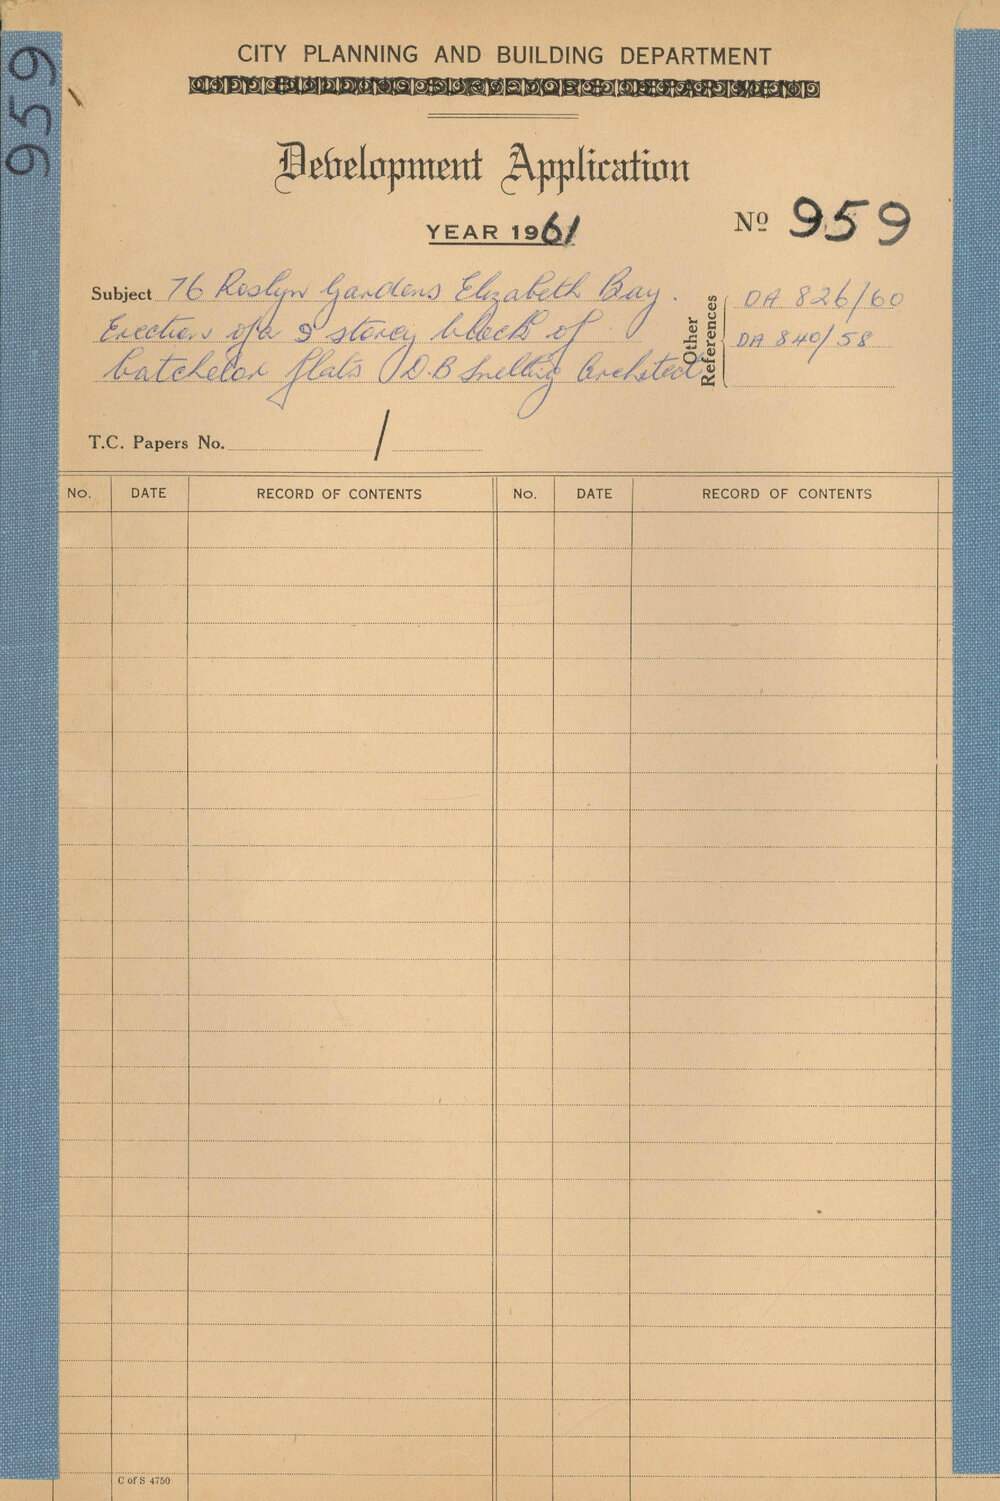 959
CITY PLANNING AND BUILDING DEPARTMENT
CITY BUILDING SURVEYOR'S DEPARTMENT
Development Application
YEAR 1961
Nº 959
Subject 76 Roslyn Gardens Elizabeth Bay.
Erection of a 9 storey block of
batchelor flats D.B Snelling Architect
Other References
DA 826/60
DA 840/58
T.C. Papers No. /
No. DATE RECORD OF CONTENTS No. DATE RECORD OF CONTENTS
C of S 4750